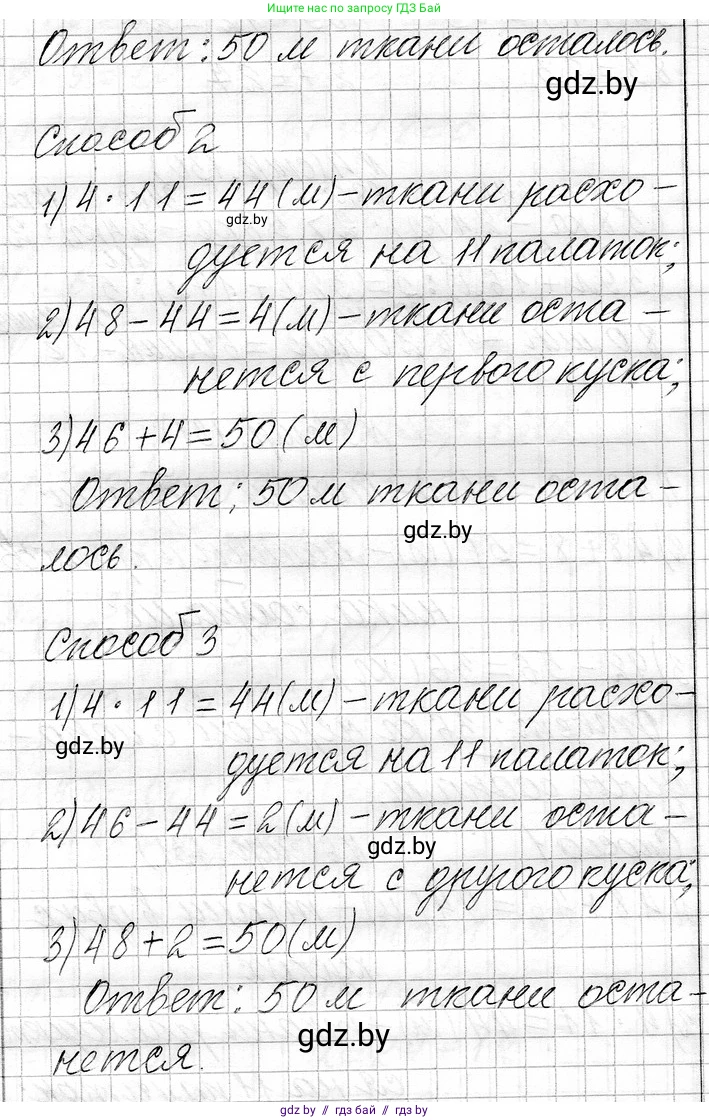 Ищите нас по запросу ГДЗ Бай
Ответ: 50 м ткани осталось.
gdz.by
Способ 2
1) 4 · 11 = 44 (м) – ткани расхо-
gdz.by
дуется на 11 палаток;
2) 48 – 44 = 4 (м) – ткани оста-
нется с первого куска;
3) 46 + 4 = 50 (м)
Ответ: 50 м ткани оста-
gdz.by
лось.
Способ 3
1) 4 · 11 = 44 (м) – ткани расхо-
gdz.by
дуется на 11 палаток;
2) 46 – 44 = 2 (м) – ткани оста-
gdz.by
нется с другого куска;
3) 48 + 2 = 50 (м)
Ответ: 50 м ткани оста-
gdz.by
нется.
gdz.by // гдз бай // gdz.by